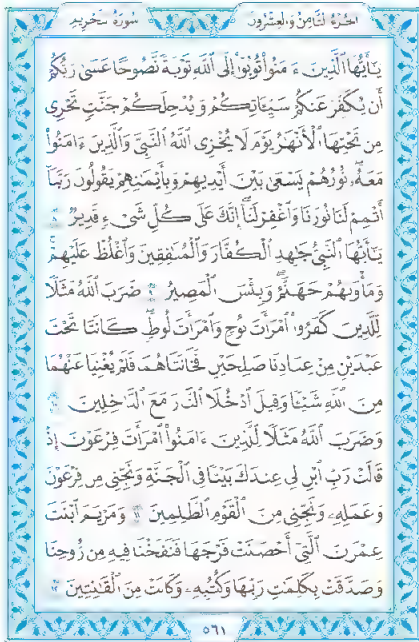 سورة تحريم الجزء الثامن والعشرون
يَٰٓأَيُّهَا ٱلَّذِينَ ءَامَنُوا۟ تُوبُوٓا۟ إِلَى ٱللَّهِ تَوْبَةً نَّصُوحًا عَسَىٰ رَبُّكُمْ
أَن يُكَفِّرَ عَنكُمْ سَيِّـَٔاتِكُمْ وَيُدْخِلَكُمْ جَنَّٰتٍ تَجْرِى
مِن تَحْتِهَا ٱلْأَنْهَٰرُ يَوْمَ لَا يُخْزِى ٱللَّهُ ٱلنَّبِىَّ وَٱلَّذِينَ ءَامَنُوا۟
مَعَهُۥ نُورُهُمْ يَسْعَىٰ بَيْنَ أَيْدِيهِمْ وَبِأَيْمَٰنِهِمْ يَقُولُونَ رَبَّنَآ
أَتْمِمْ لَنَا نُورَنَا وَٱغْفِرْ لَنَآ إِنَّكَ عَلَىٰ كُلِّ شَىْءٍ قَدِيرٌ ٨
يَٰٓأَيُّهَا ٱلنَّبِىُّ جَٰهِدِ ٱلْكُفَّارَ وَٱلْمُنَٰفِقِينَ وَٱغْلُظْ عَلَيْهِمْ
وَمَأْوَىٰهُمْ جَهَنَّمُ وَبِئْسَ ٱلْمَصِيرُ ٩ ضَرَبَ ٱللَّهُ مَثَلًا
لِّلَّذِينَ كَفَرُوا۟ ٱمْرَأَتَ نُوحٍ وَٱمْرَأَتَ لُوطٍ كَانَتَا تَحْتَ
عَبْدَيْنِ مِنْ عِبَادِنَا صَٰلِحَيْنِ فَخَانَتَاهُمَا فَلَمْ يُغْنِيَا عَنْهُمَا
مِنَ ٱللَّهِ شَيْـًٔا وَقِيلَ ٱدْخُلَا ٱلنَّارَ مَعَ ٱلدَّٰخِلِينَ ١٠
وَضَرَبَ ٱللَّهُ مَثَلًا لِّلَّذِينَ ءَامَنُوا۟ ٱمْرَأَتَ فِرْعَوْنَ إِذْ
قَالَتْ رَبِّ ٱبْنِ لِى عِندَكَ بَيْتًا فِى ٱلْجَنَّةِ وَنَجِّنِى مِن فِرْعَوْنَ
وَعَمَلِهِۦ وَنَجِّنِى مِنَ ٱلْقَوْمِ ٱلظَّٰلِمِينَ ١١ وَمَرْيَمَ ٱبْنَتَ
عِمْرَٰنَ ٱلَّتِىٓ أَحْصَنَتْ فَرْجَهَا فَنَفَخْنَا فِيهِ مِن رُّوحِنَا
وَصَدَّقَتْ بِكَلِمَٰتِ رَبِّهَا وَكُتُبِهِۦ وَكَانَتْ مِنَ ٱلْقَٰنِتِينَ ١٢
٥٦١